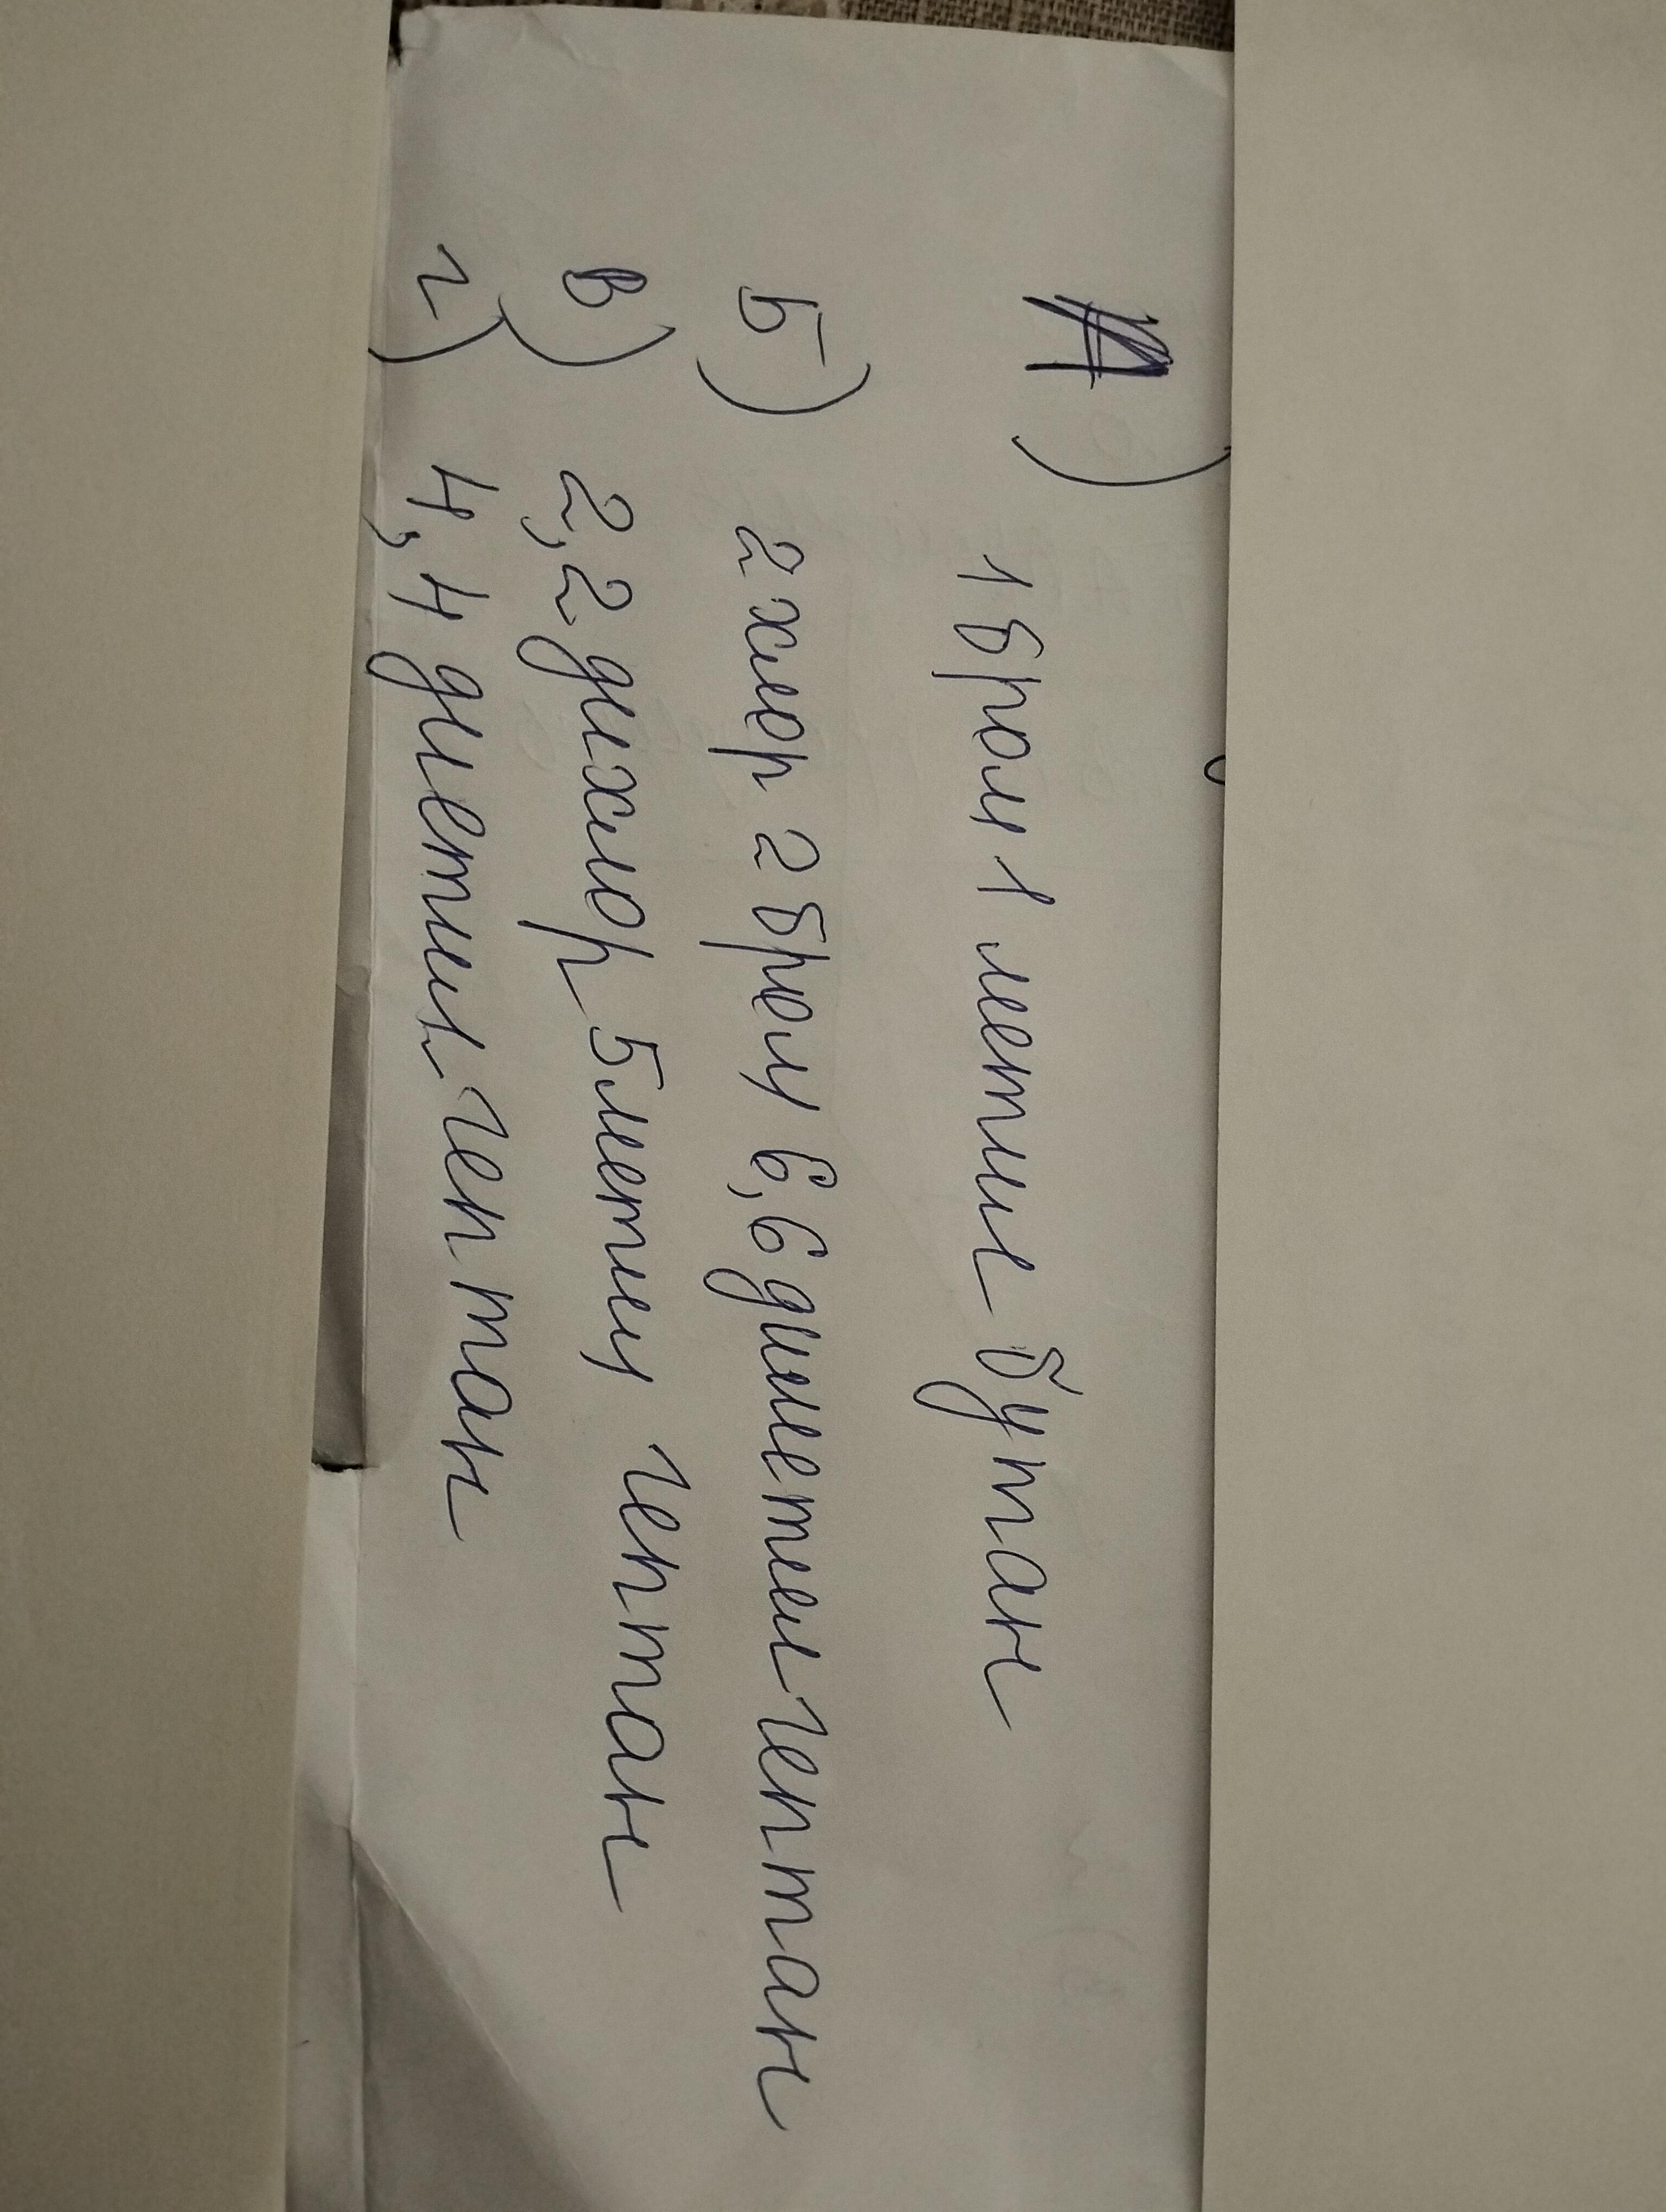 А) 1 бром 1 метил бутан
Б) 2 хлор 2 бром 6,6 диметил гептан
в) 2,2 дихлор 5 метил гептан
г) 4,4 диетил гептан